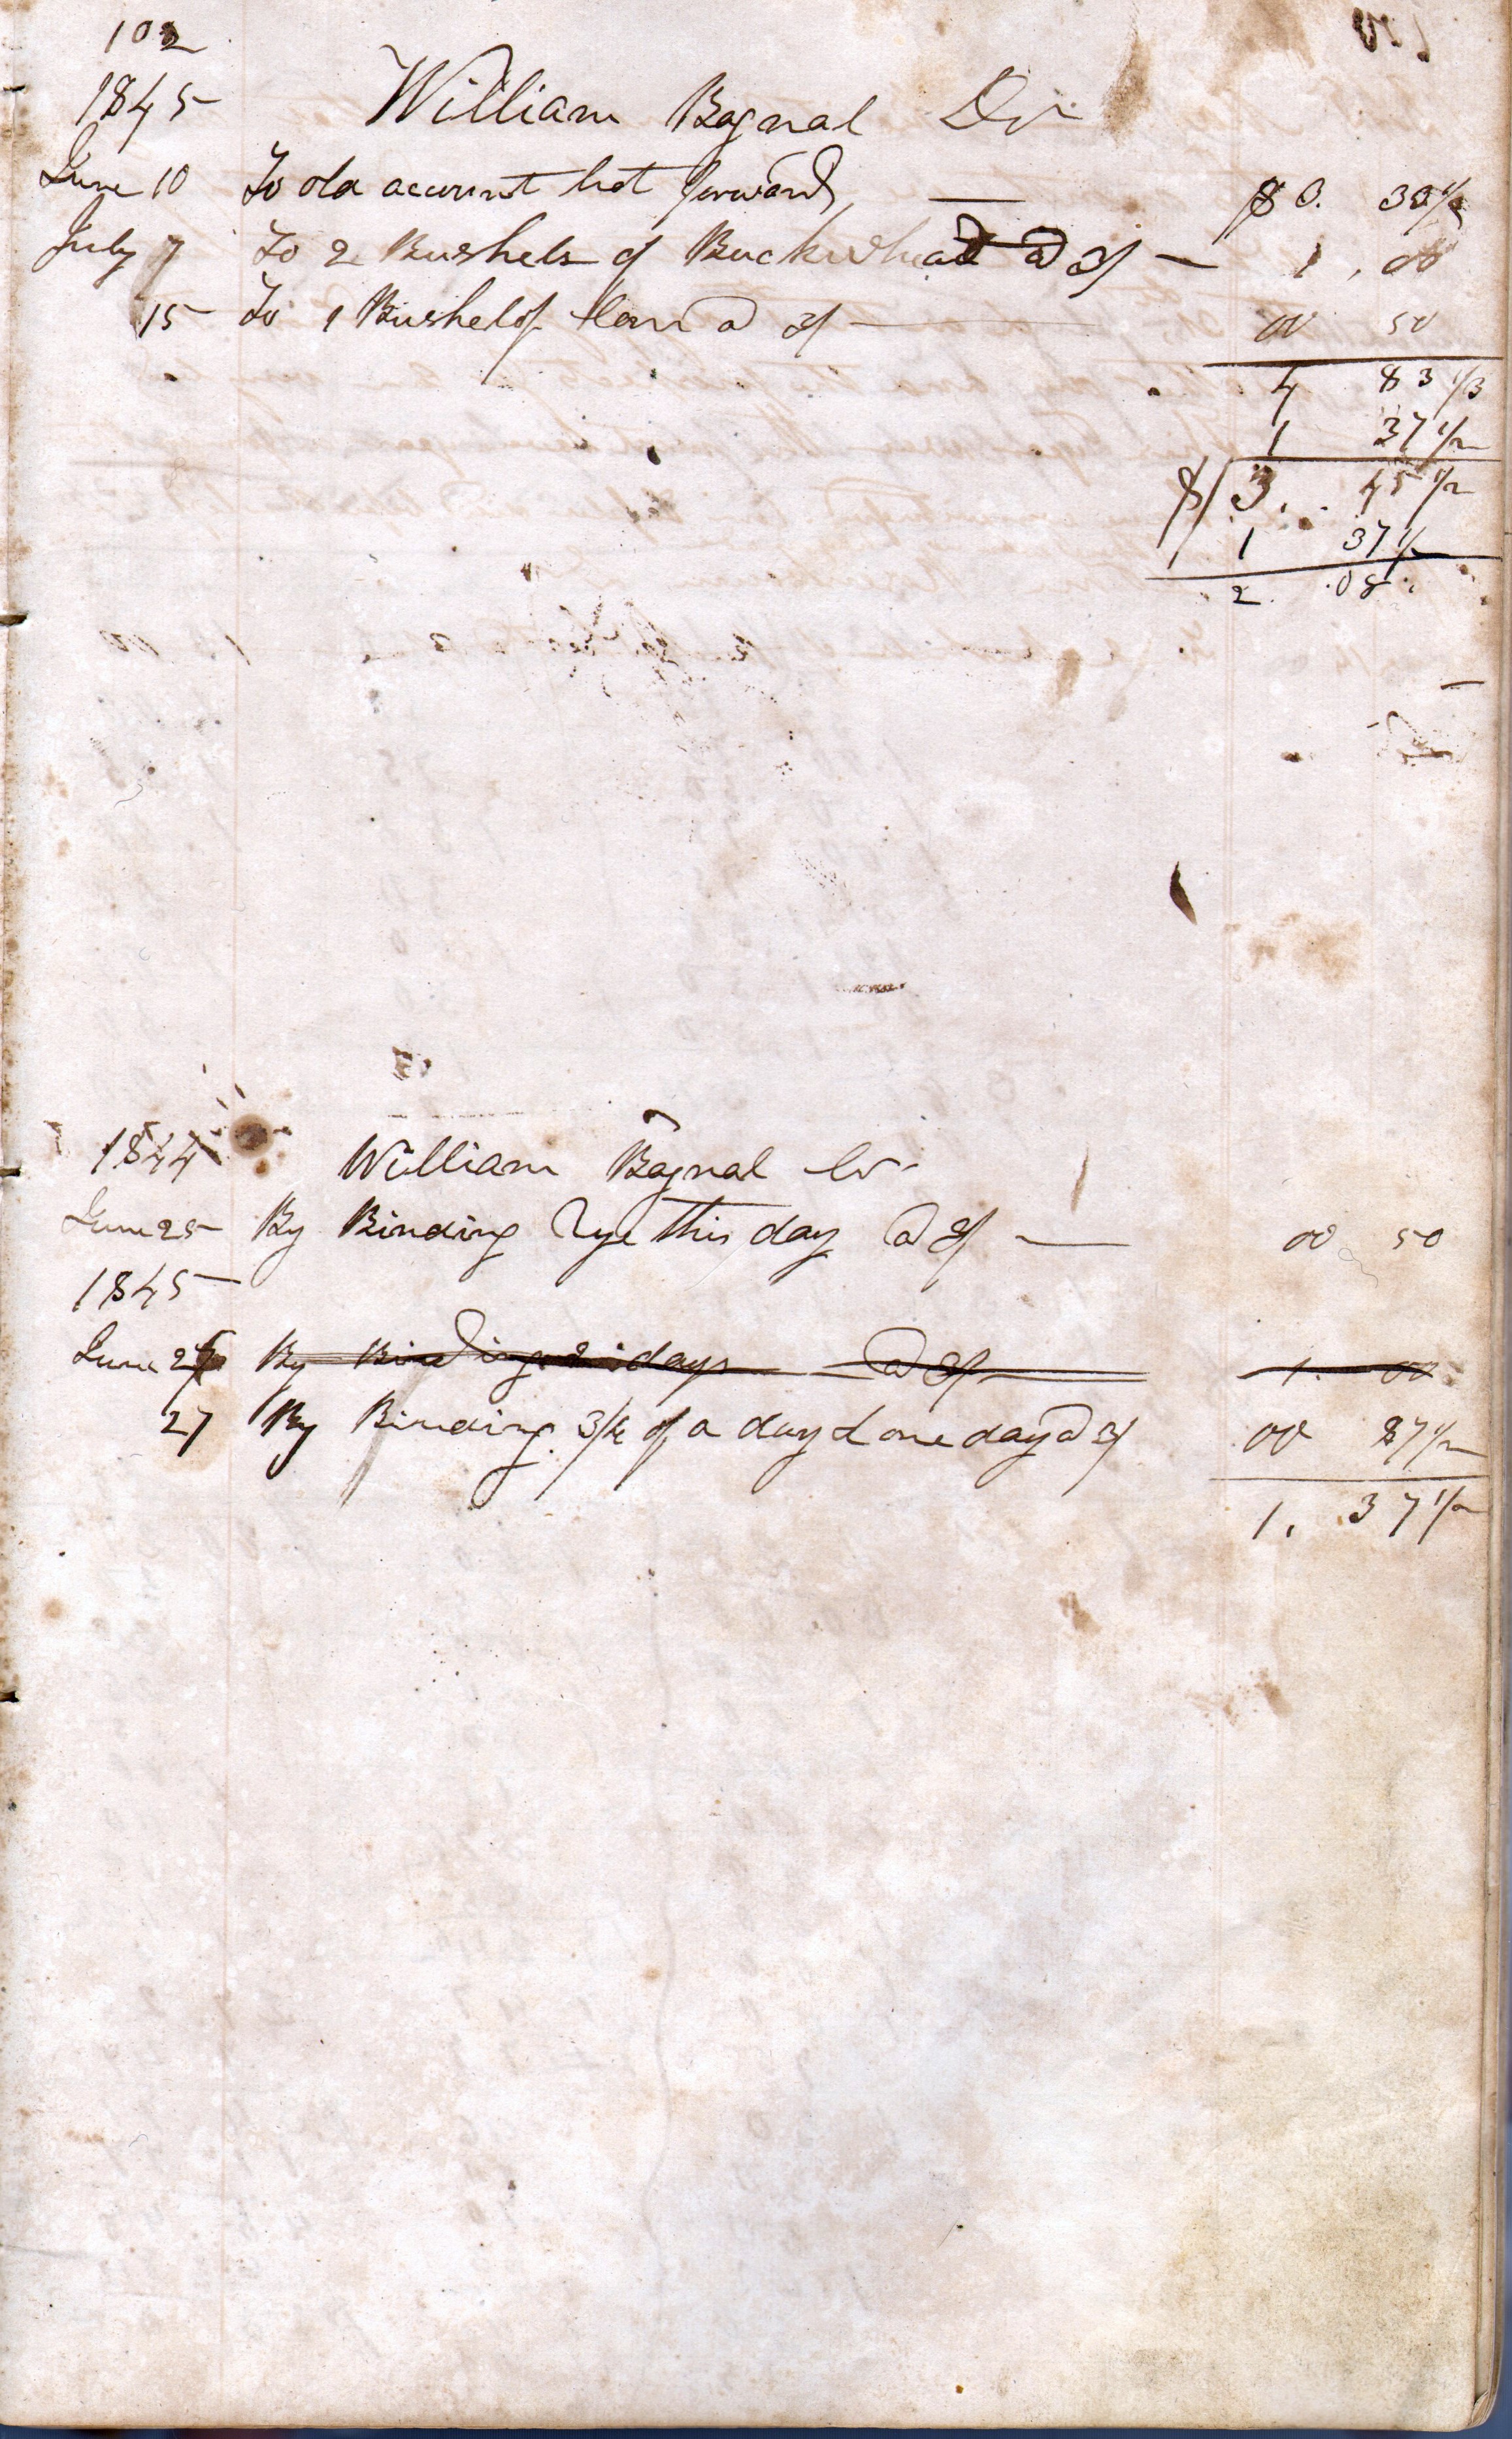 102
1845
William Bagnal Dr
June 10 To old account bot forward, — $ 3. 33 1/3
July 7 To 2 Bushels of Buckwheat @ 3/ — 1. 00
15 To 1 Bushel of Corn @ 3/ — 00 50
4 83 1/3
1 37 1/2
$ 3. 45 1/2
1 37 1/2
2. 08
1844
William Bagnal Cr
June 25 By Binding Rye this day @ 3/ — 00 50
1845
June 25 By Binding 2 days @ 3/ 1. 00
27 By Binding 3/4 of a day & one day @ 3/ 00 87 1/2
1. 37 1/2